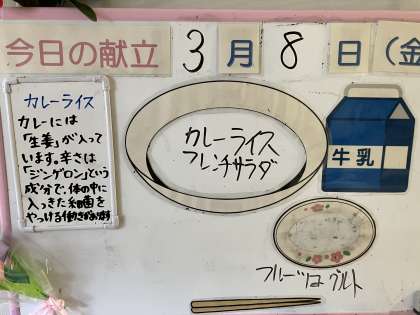 今日の献立 3月8日(金
カレーライス
カレーには
「生姜」が入って
います。辛さは
「ジンゲロン」という
成分で、体の中に
入っきた細菌を
やっける働きがあります
カレーライス
フレンチサラダ
牛乳
フルーツヨーグルト